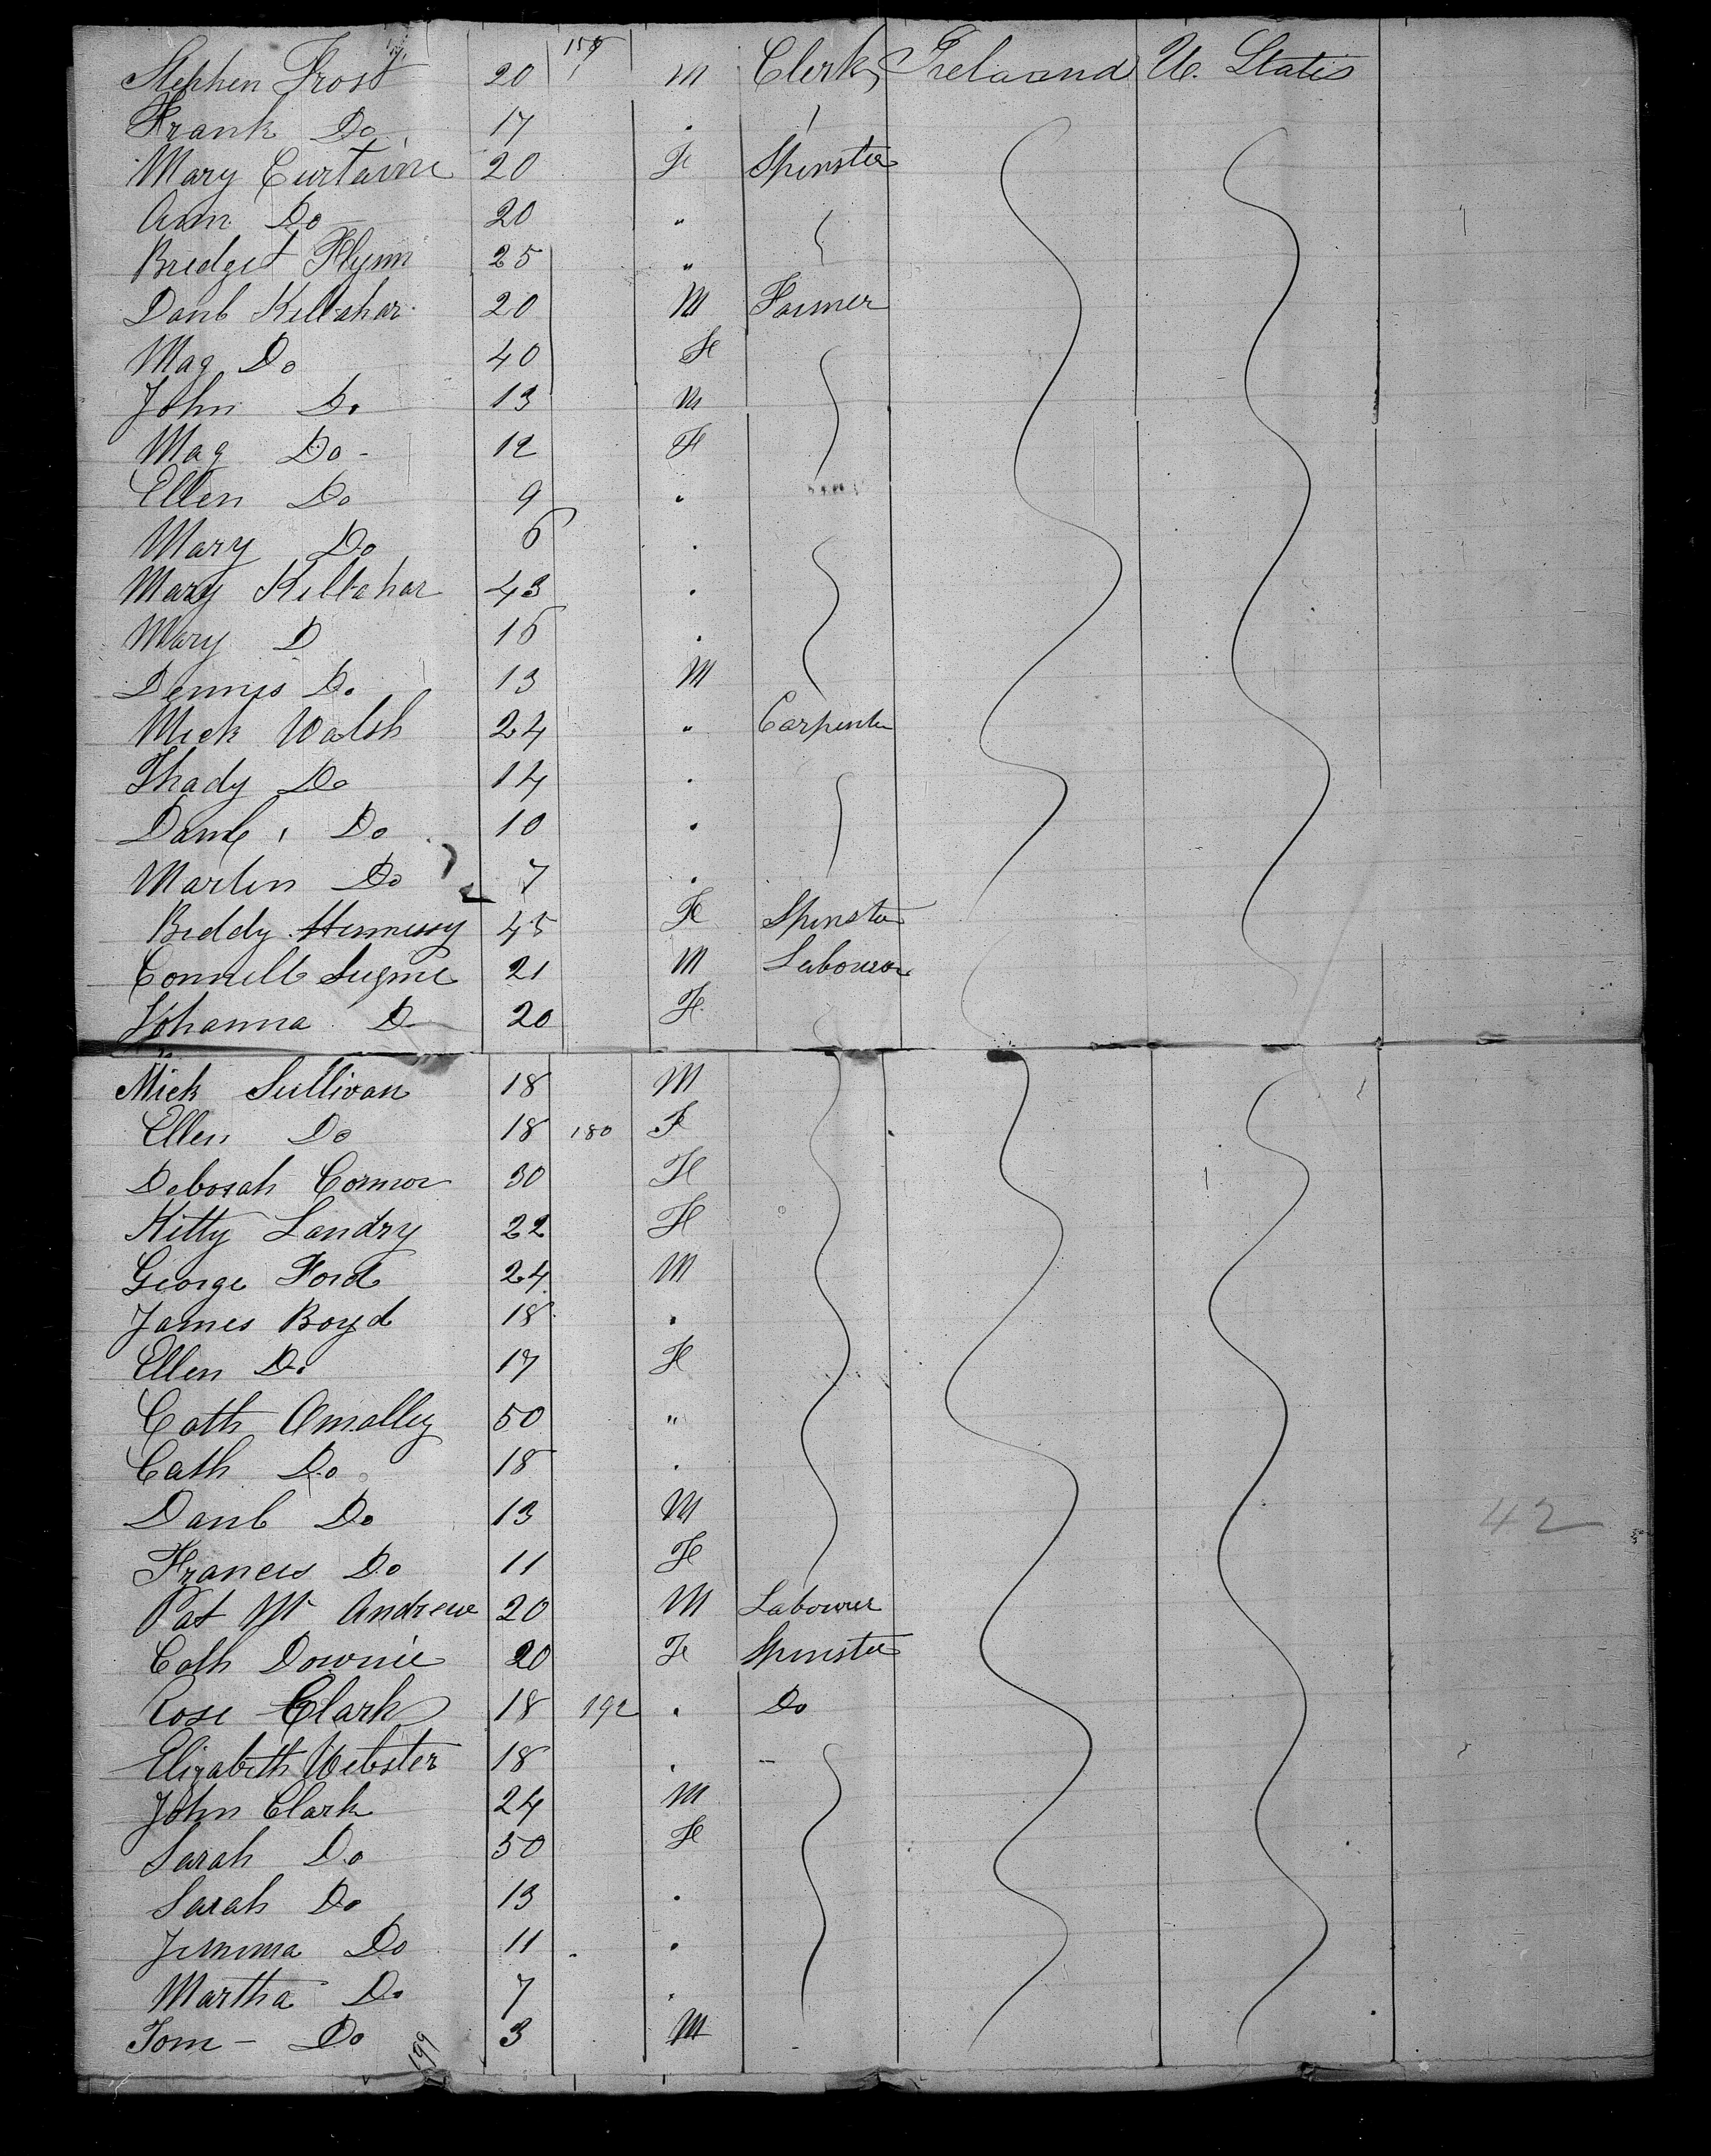 Stephen Frost 20 M Clerk Irelaand U. States
Frank Do 17 "
Mary Curtaine 20 F Spinster
Ann Do 20 "
Bredget Flynn 25 "
Danl Kellahar 20 M Farmer
Mag Do 40 F
John Do 13 M
Mag Do - 12 F
Ellen Do 9 "
Mary Do 6 "
Mary Kellahar 43 "
Mary D 16 "
Dennis Do 13 M
Mick Walsh 24 " Carpenter
Thady Do 14 "
Danl Do 10 "
Marten Do 7 "
Biddy Hennessy 45 F Spinster
Connell 21 M Labourer
Johanna D 20 F
Mick Sullivan 18 M
Ellen Do 18 180 F
Deborah Connor 30 F
Kitty Landry 22 F
George Ford 24 M
James Boyd 18 "
Ellen Do 17 F
Cath Omalley 50 "
Cath Do 18 "
Danl Do 13 M
Frances Do 11 F
Pat Mc Andrew 20 M Labourer
Cath Downie 20 F Spinster
Rose Clark 18 192 " Do
Elizabeth Webster 18 "
John Clark 24 M
Sarah Do 50 F
Sarah Do 13 "
Jemima Do 11 "
Martha Do 7 "
Tom - Do 3 M
199
42